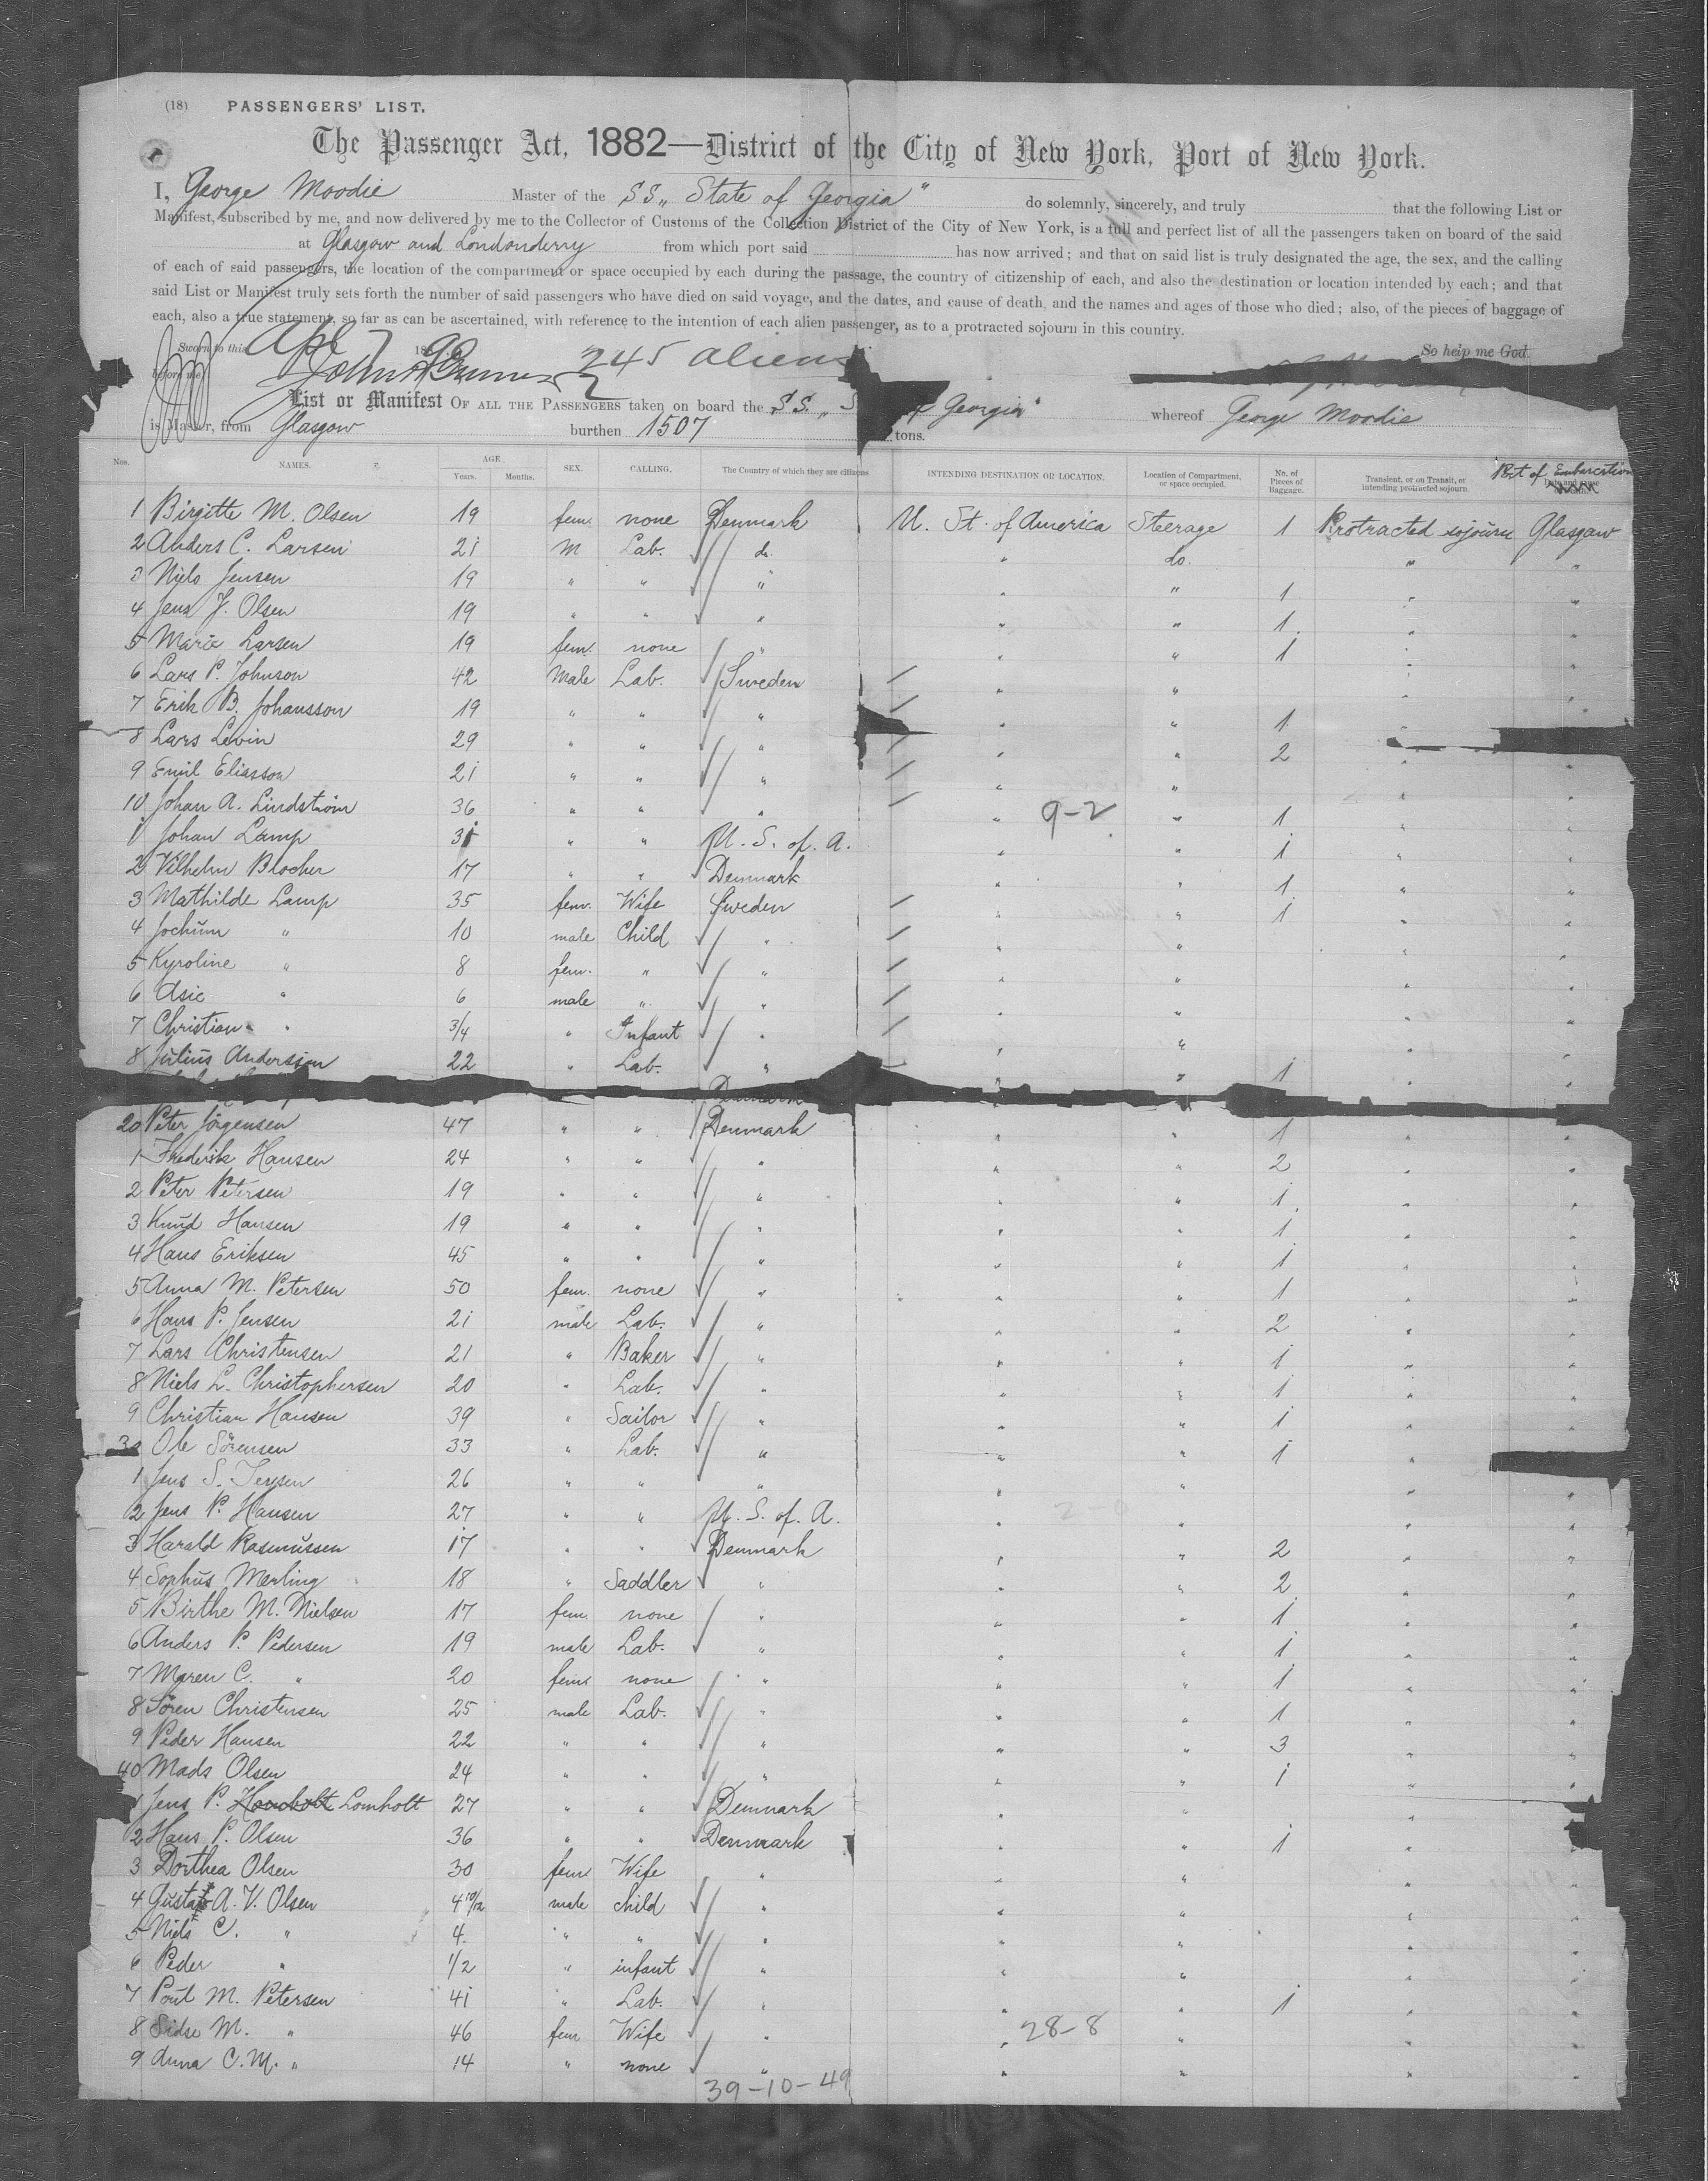 (18) PASSENGERS' LIST.
The Passenger Act, 1882—District of the City of New York, Port of New York.
I, George Moodie Master of the SS „ State of Georgia" do solemnly, sincerely, and truly that the following List or
Manifest, subscribed by me, and now delivered by me to the Collector of Customs of the Collection District of the City of New York, is a full and perfect list of all the passengers taken on board of the said
at Glasgow and Londonderry from which port said has now arrived; and that on said list is truly designated the age, the sex, and the calling
of each of said passengers, the location of the compartment or space occupied by each during the passage, the country of citizenship of each, and also the destination or location intended by each; and that
said List or Manifest truly sets forth the number of said passengers who have died on said voyage, and the dates, and cause of death, and the names and ages of those who died; also, of the pieces of baggage of
each, also a true statement, so far as can be ascertained, with reference to the intention of each alien passenger, as to a protracted sojourn in this country.
Sworn to this Apl 7 1890 So help me God.
before me 245 aliens
List or Manifest OF ALL THE PASSENGERS taken on board the SS. „ Georgia" whereof George Moodie
is Master, from Glasgow burthen 1507 tons.
Nos. NAMES. AGE Years. Months. SEX. CALLING. The Country of which they are citizens INTENDING DESTINATION OR LOCATION. Location of Compartment, or space occupied. No. of Pieces of Baggage. Transient, or on Transit, or intending protracted sojourn Port of Embarcation
1 Birgitte M. Olsen 19 fem. none Denmark U. St. of America Steerage 1 Protracted sojourn Glasgow
2 Anders C. Larsen 21 M Lab. do. " do. " "
3 Niels Jensen 19 " " " " " 1 " "
4 Jens J. Olsen 19 " " " " " 1 " "
5 Marie Larsen 19 fem. none " " " 1 " "
6 Lars P. Johnson 42 Male Lab. Sweden " " " "
7 Erik B. Johansson 19 " " " " " 1 " "
8 Lars Levin 29 " " " " " 2 " "
9 Emil Eliasson 21 " " " " " " "
10 Johan A. Lindström 36 " " " " 9-2 " 1 " "
1 Johan Lamp 31 " " U. S. of. A. " " 1 " "
2 Vilhelm Blocher 17 " " Denmark " " 1 " "
3 Mathilde Lamp 35 fem. Wife Sweden " " 1 " "
4 Jochum " 10 male Child " " " " "
5 Kyroline " 8 fem. " " " " " "
6 Asie " 6 male " " " " " "
7 Christian " 3/4 " Infant " " " " "
8 Julius Andersson 22 " Lab. " " " 1 " "
Denmark
20 Peter Jörgensen 47 " " Denmark " " 1 " "
1 Frederik Hansen 24 " " " " " 2 " "
2 Peter Petersen 19 " " " " " 1 " "
3 Knud Hansen 19 " " " " " 1 " "
4 Hans Eriksen 45 " " " " " 1 " "
5 Anna M. Petersen 50 fem. none " " " 1 " "
6 Hans P. Jensen 21 male Lab. " " " 2 " "
7 Lars Christensen 21 " Baker " " " 1 " "
8 Niels L. Christophersen 20 " Lab. " " " 1 " "
9 Christian Hansen 39 " Sailor " " " 1 " "
30 Ole Sörensen 33 " Lab. " " " 1 " "
1 Jens S. 26 " " " " " " "
2 Jens P. Hansen 27 " " U. S. of. A. " " " "
3 Harald Rasmussen 17 " " Denmark " " 2 " "
4 Sophus Merling 18 " Saddler " " " 2 " "
5 Birthe M. Nielsen 17 fem. none " " " 1 " "
6 Anders P. Pedersen 19 male Lab. " " " 1 " "
7 Maren C. " 20 fem. none " " " 1 " "
8 Sören Christensen 25 male Lab. " " " 1 " "
9 Peder Hansen 22 " " " " " 3 " "
40 Mads Olsen 24 " " " " " 1 " "
1 Jens P. Lomholt 27 " " Denmark " " " "
2 Hans P. Olsen 36 " " Denmark " " 1 " "
3 Dorthea Olsen 30 fem. Wife " " " " "
4 Gustaf A. V. Olsen 4 10/12 male child " " " " "
5 Niels C. " 4 " " " " " " "
6 Peder " 1/2 " infant " " " " "
7 Poul M. Petersen 41 " Lab. " " " 1 " "
8 Sidse M. " 46 fem Wife " " 28-8 " " "
9 Anna C. M. " 14 " none " " " " "
39-10-49